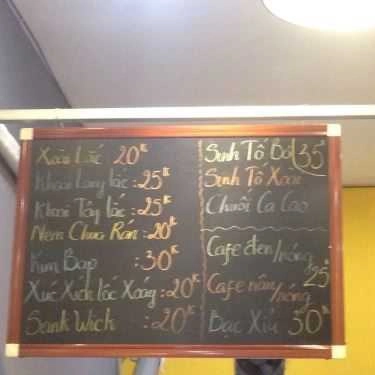 Xoài Lắc 20K
Khoai Lang lắc : 25K
Khoai Tây lắc : 25K
Nem Chua Rán : 20K
Kim Bap : 30K
Xúc Xích lốc Xoáy : 20K
Sank Wich : 20K
Sinh Tố Bơ 35
Sinh Tố Xoài
Chuối Ca Cao
Cafe đen/nóng 25K
Cafe nâu/nóng
Bạc Xỉu 30K